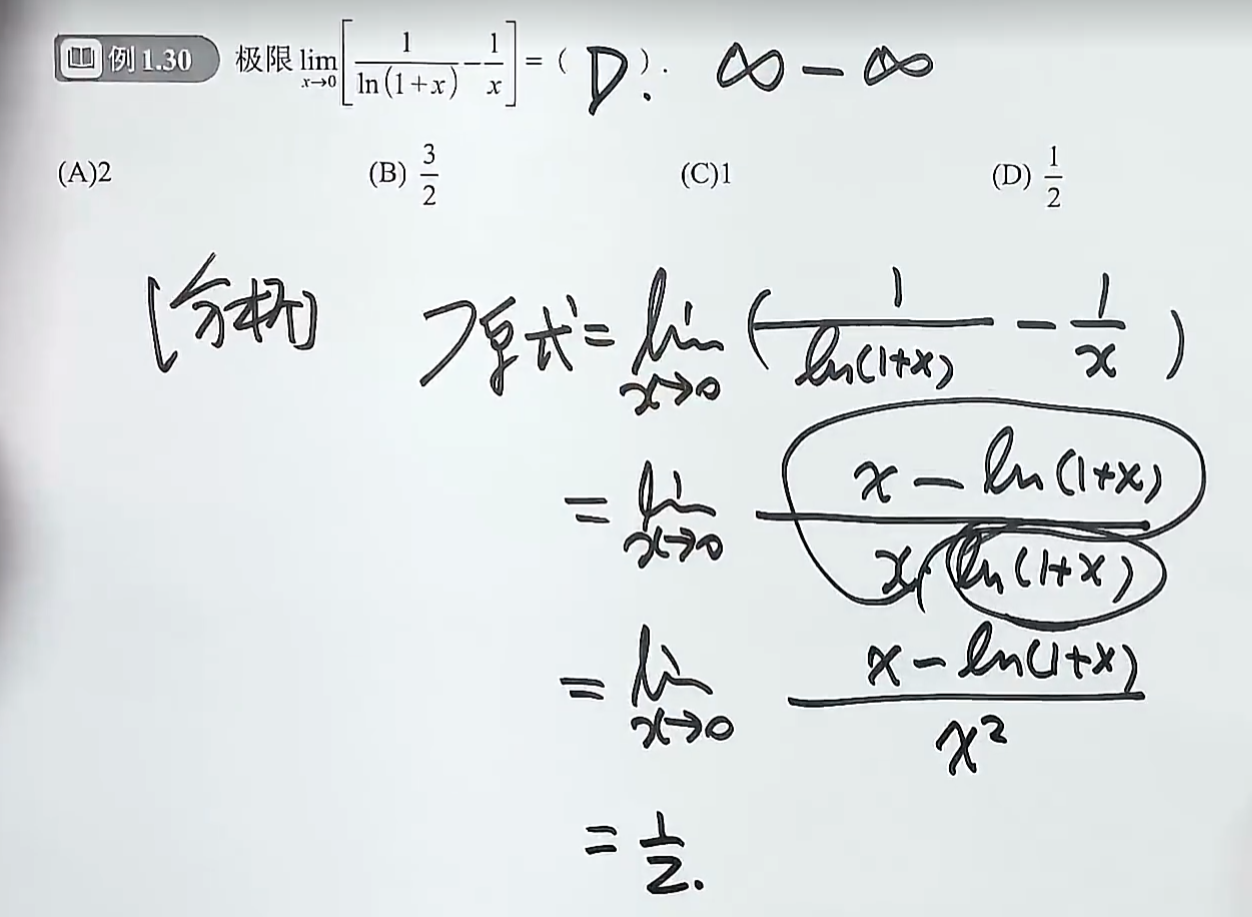 例 1.30 极限 lim x→0 [1/ln(1+x) − 1/x] = ( D ). ∞ − ∞
(A)2 (B) 3/2 (C)1 (D) 1/2
[分析] 原式 = lim x→0 (1/ln(1+x) − 1/x)
= lim x→0 x − ln(1+x) / x ln(1+x)
= lim x→0 x − ln(1+x) / x²
= 1/2.